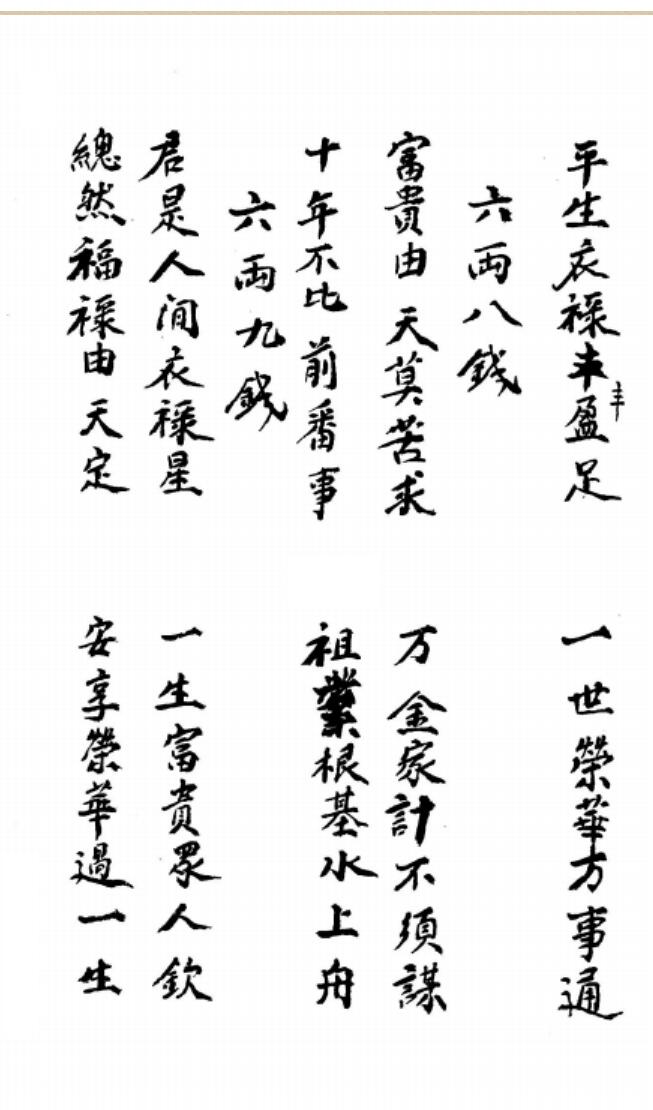 平生衣祿丰盈足 一世榮華万事通
丰
六両八錢
富貴由天莫苦求 万金家計不須謀
十年不比前番事 祖業根基水上舟
六両九錢
君是人间衣祿星 一生富貴眾人欽
總然福祿由天定 安享榮華過一生